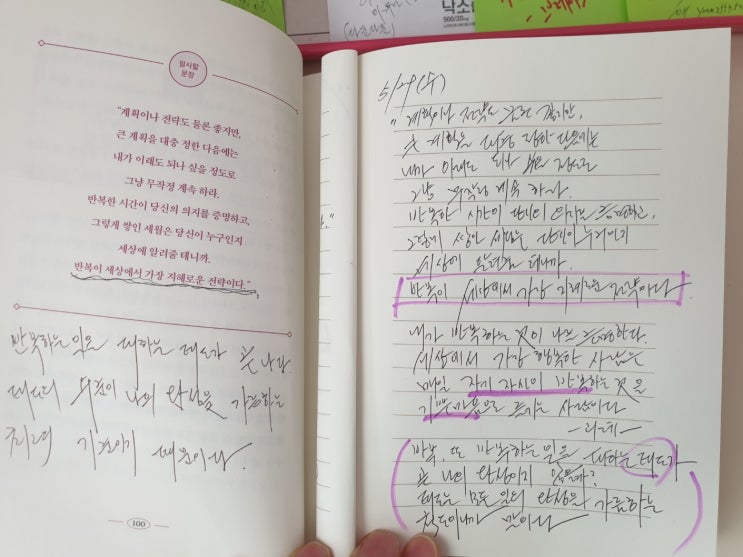 낙소
500/20mg
필사할
문장
"계획이나 전략도 물론 좋지만,
큰 계획을 대충 정한 다음에는
내가 이래도 되나 싶을 정도로
그냥 무작정 계속 하라.
반복한 시간이 당신의 의지를 증명하고,
그렇게 쌓인 세월은 당신이 누구인지
세상에 알려줄 테니까.
반복이 세상에서 가장 지혜로운 전략이다."
반복하는 일을 대하는 태도가 곧 나다.
태도의 수준이 나의 인생을 가늠하는
최고의 기준이기 때문이다.
100
5/29(수)
"계획이나 전략도 물론 좋지만,
큰 계획을 대충 정한 다음에는
내가 이래도 되나 싶을 정도로
그냥 무작정 계속 하라.
반복한 시간이 당신의 의지를 증명하고,
그렇게 쌓인 세월은 당신이 누구인지
세상에 알려줄 테니까.
반복이 세상에서 가장 지혜로운 전략이다.
내가 반복하는 것이 나를 증명한다.
세상에서 가장 행복한 사람은
매일 자기 자신이 반복하는 것을
기쁜 마음으로 즐기는 사람이다
-괴테-
반복, 또 반복하는 일을 대하는 태도가
곧 나의 인생이지 않을까?
태도는 모든 일의 인생을 가늠하는
척도이니까 말이다